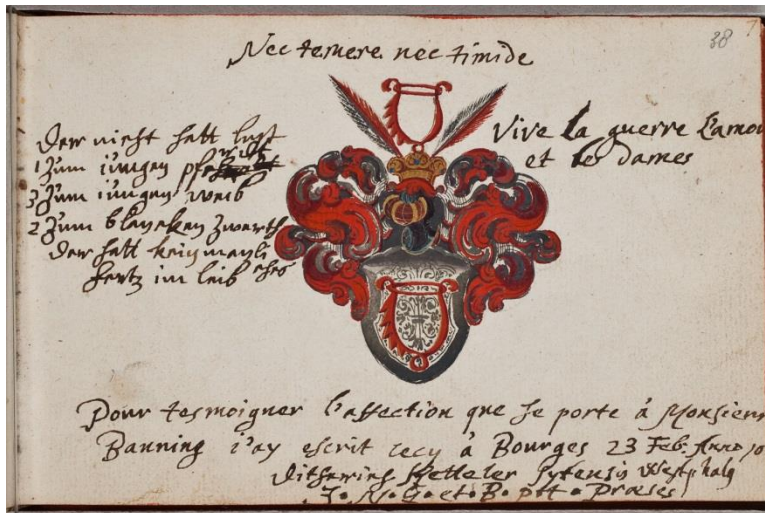 38
Nec temere nec timide
Der nicht hatt lust
1 Zum iungen
3 Zum iungen weib
2 Zum blancken
Der hatt kein
hertz im leib
Vive la guerre L'amou
et les dames
Pour tesmoigner l'affection que je porte à Monsieur
Banning i'ay escrit cecy à Bourges 23 Feb. Anno
Ketteler